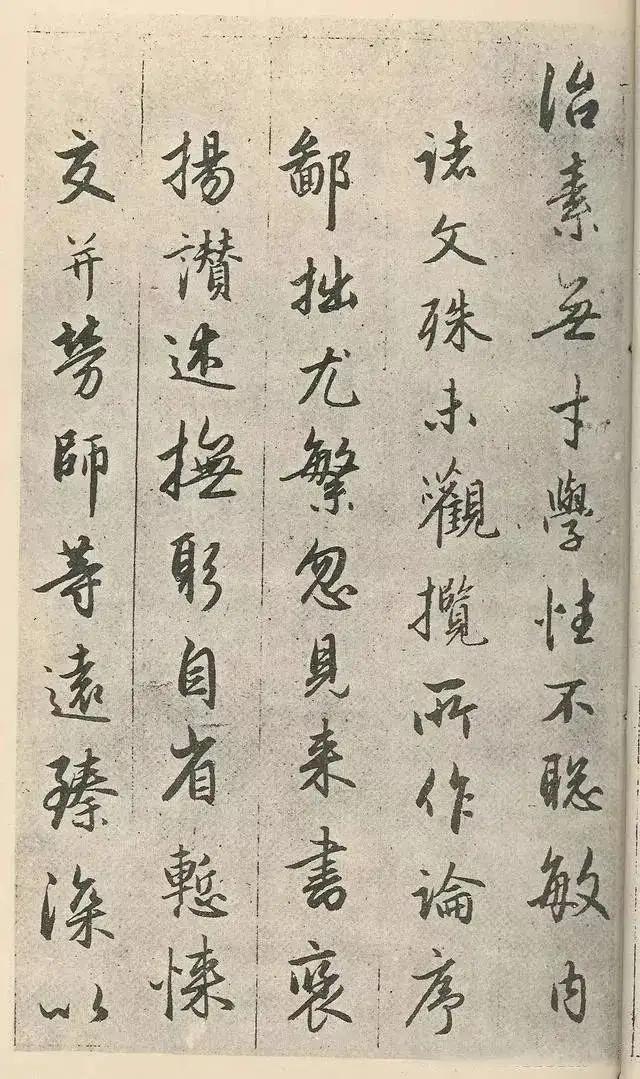 治素無才學性不聦敏内
諸文殊未觀攬所作論序
鄙拙尤繁忽見来書褒
揚讃述撫躬自省慙悚
交并勞師等遠臻深以